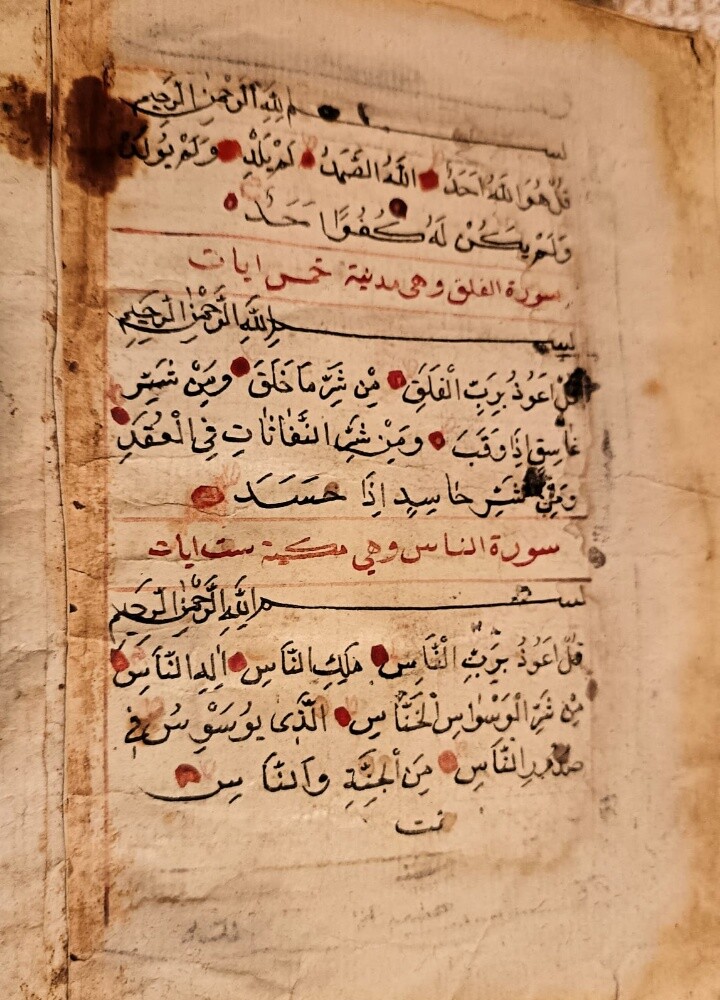 بسم الله الرحمن الرحيم
قُلْ هُوَ اللهُ اَحَدٌ اللهُ الصَّمَدُ لَمْ يَلِدْ وَلَمْ يُولَدْ
وَلَمْ يَكُنْ لَهُ كُفُوًا اَحَدٌ
سورة الفلق وهى مدنية خمس ايات
بسم الله الرحمن الرحيم
قُلْ اَعُوذُ بِرَبِّ الْفَلَقِ مِنْ شَرِّ مَا خَلَقَ وَمِنْ شَرِّ
غَاسِقٍ اِذَا وَقَبَ وَمِنْ شَرِّ النَّفَّاثَاتِ فِى الْعُقَدِ
وَمِنْ شَرِّ حَاسِدٍ اِذَا حَسَدَ
سورة الناس وهي مكية ست ايات
بسم الله الرحمن الرحيم
قُلْ اَعُوذُ بِرَبِّ النَّاسِ مَلِكِ النَّاسِ اِلٰهِ النَّاسِ
مِنْ شَرِّ الْوَسْوَاسِ الْخَنَّاسِ الَّذِى يُوَسْوِسُ فِى
صُدُورِ النَّاسِ مِنَ الْجِنَّةِ وَالنَّاسِ
تمت